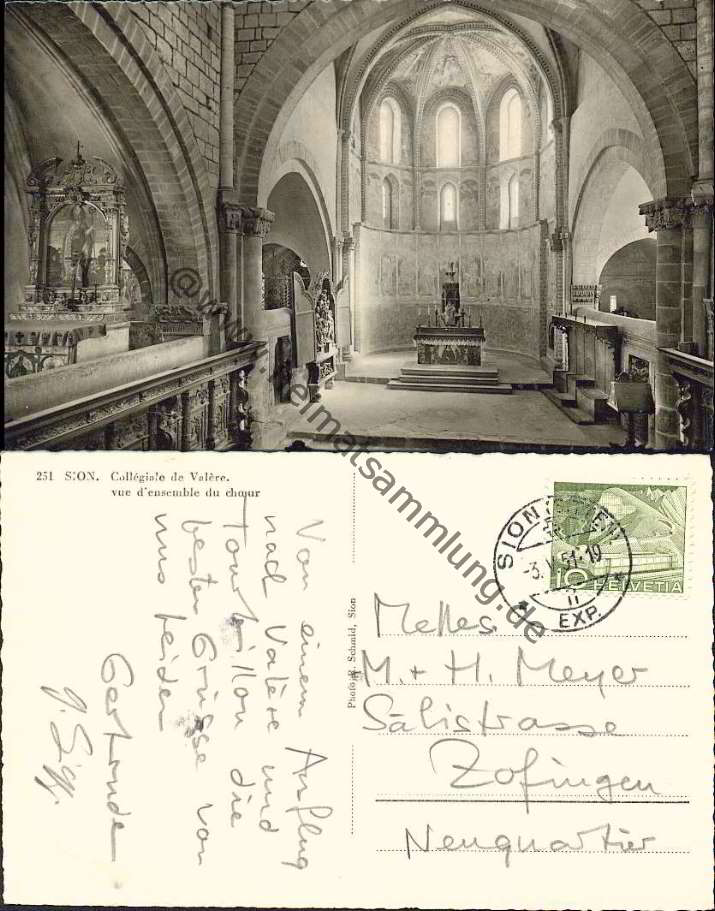 @www.heimatsammlung.de
251 SION. Collégiale de Valère.
vue d'ensemble du chœur
Von einem Ausflug
nach Valère und
Tourbillon die
besten Grüsse von
uns beiden
Gertrude
Photo R. Schmid, Sion
SION
3.V.51-19
EXP.
10
HELVETIA
Melles.
M. + H. Meyer
Sälistrasse
Zofingen
Neuquartier